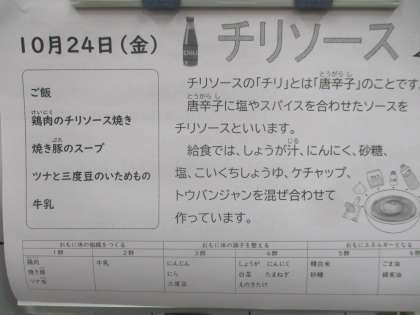 10月24日(金)
チリソース
CHILI
ご飯
鶏肉のチリソース焼き
焼き豚のスープ
ツナと三度豆のいためもの
牛乳
チリソースの「チリ」とは「唐辛子」のことです。
唐辛子に塩やスパイスを合わせたソースを
チリソースといいます。
給食では、しょうが汁、にんにく、砂糖、
塩、こいくちしょうゆ、ケチャップ、
トウバンジャンを混ぜ合わせて
作っています。
おもに体の組織をつくる おもに体の調子を整える おもにエネルギーとなる
1群 2群 3群 4群 5群
鶏肉 牛乳 にんじん しょうが にんにく 精白米 ごま油
焼き豚 にら 白菜 たまねぎ 砂糖 綿実油
ツナ 三度豆 えのきたけ